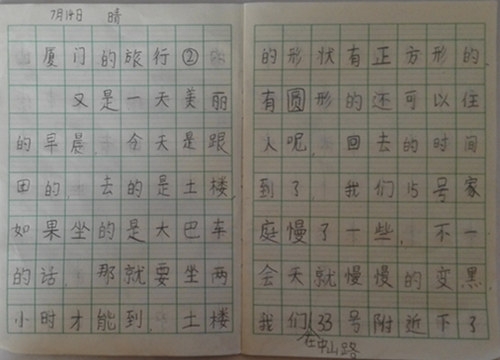 7月14日 晴
厦门的旅行②
又是一天美丽
的早晨 今天是跟
团的 去的是土楼,
如果坐的是大巴车
的话, 那就要坐两
小时才能到. 土楼
的形状有正方形的,
有圆形的还可以住
人呢. 回去的时间
到了 我们15号家
庭慢了一些, 不一
会天就慢慢的变黑
我们在中山路133号附近下了